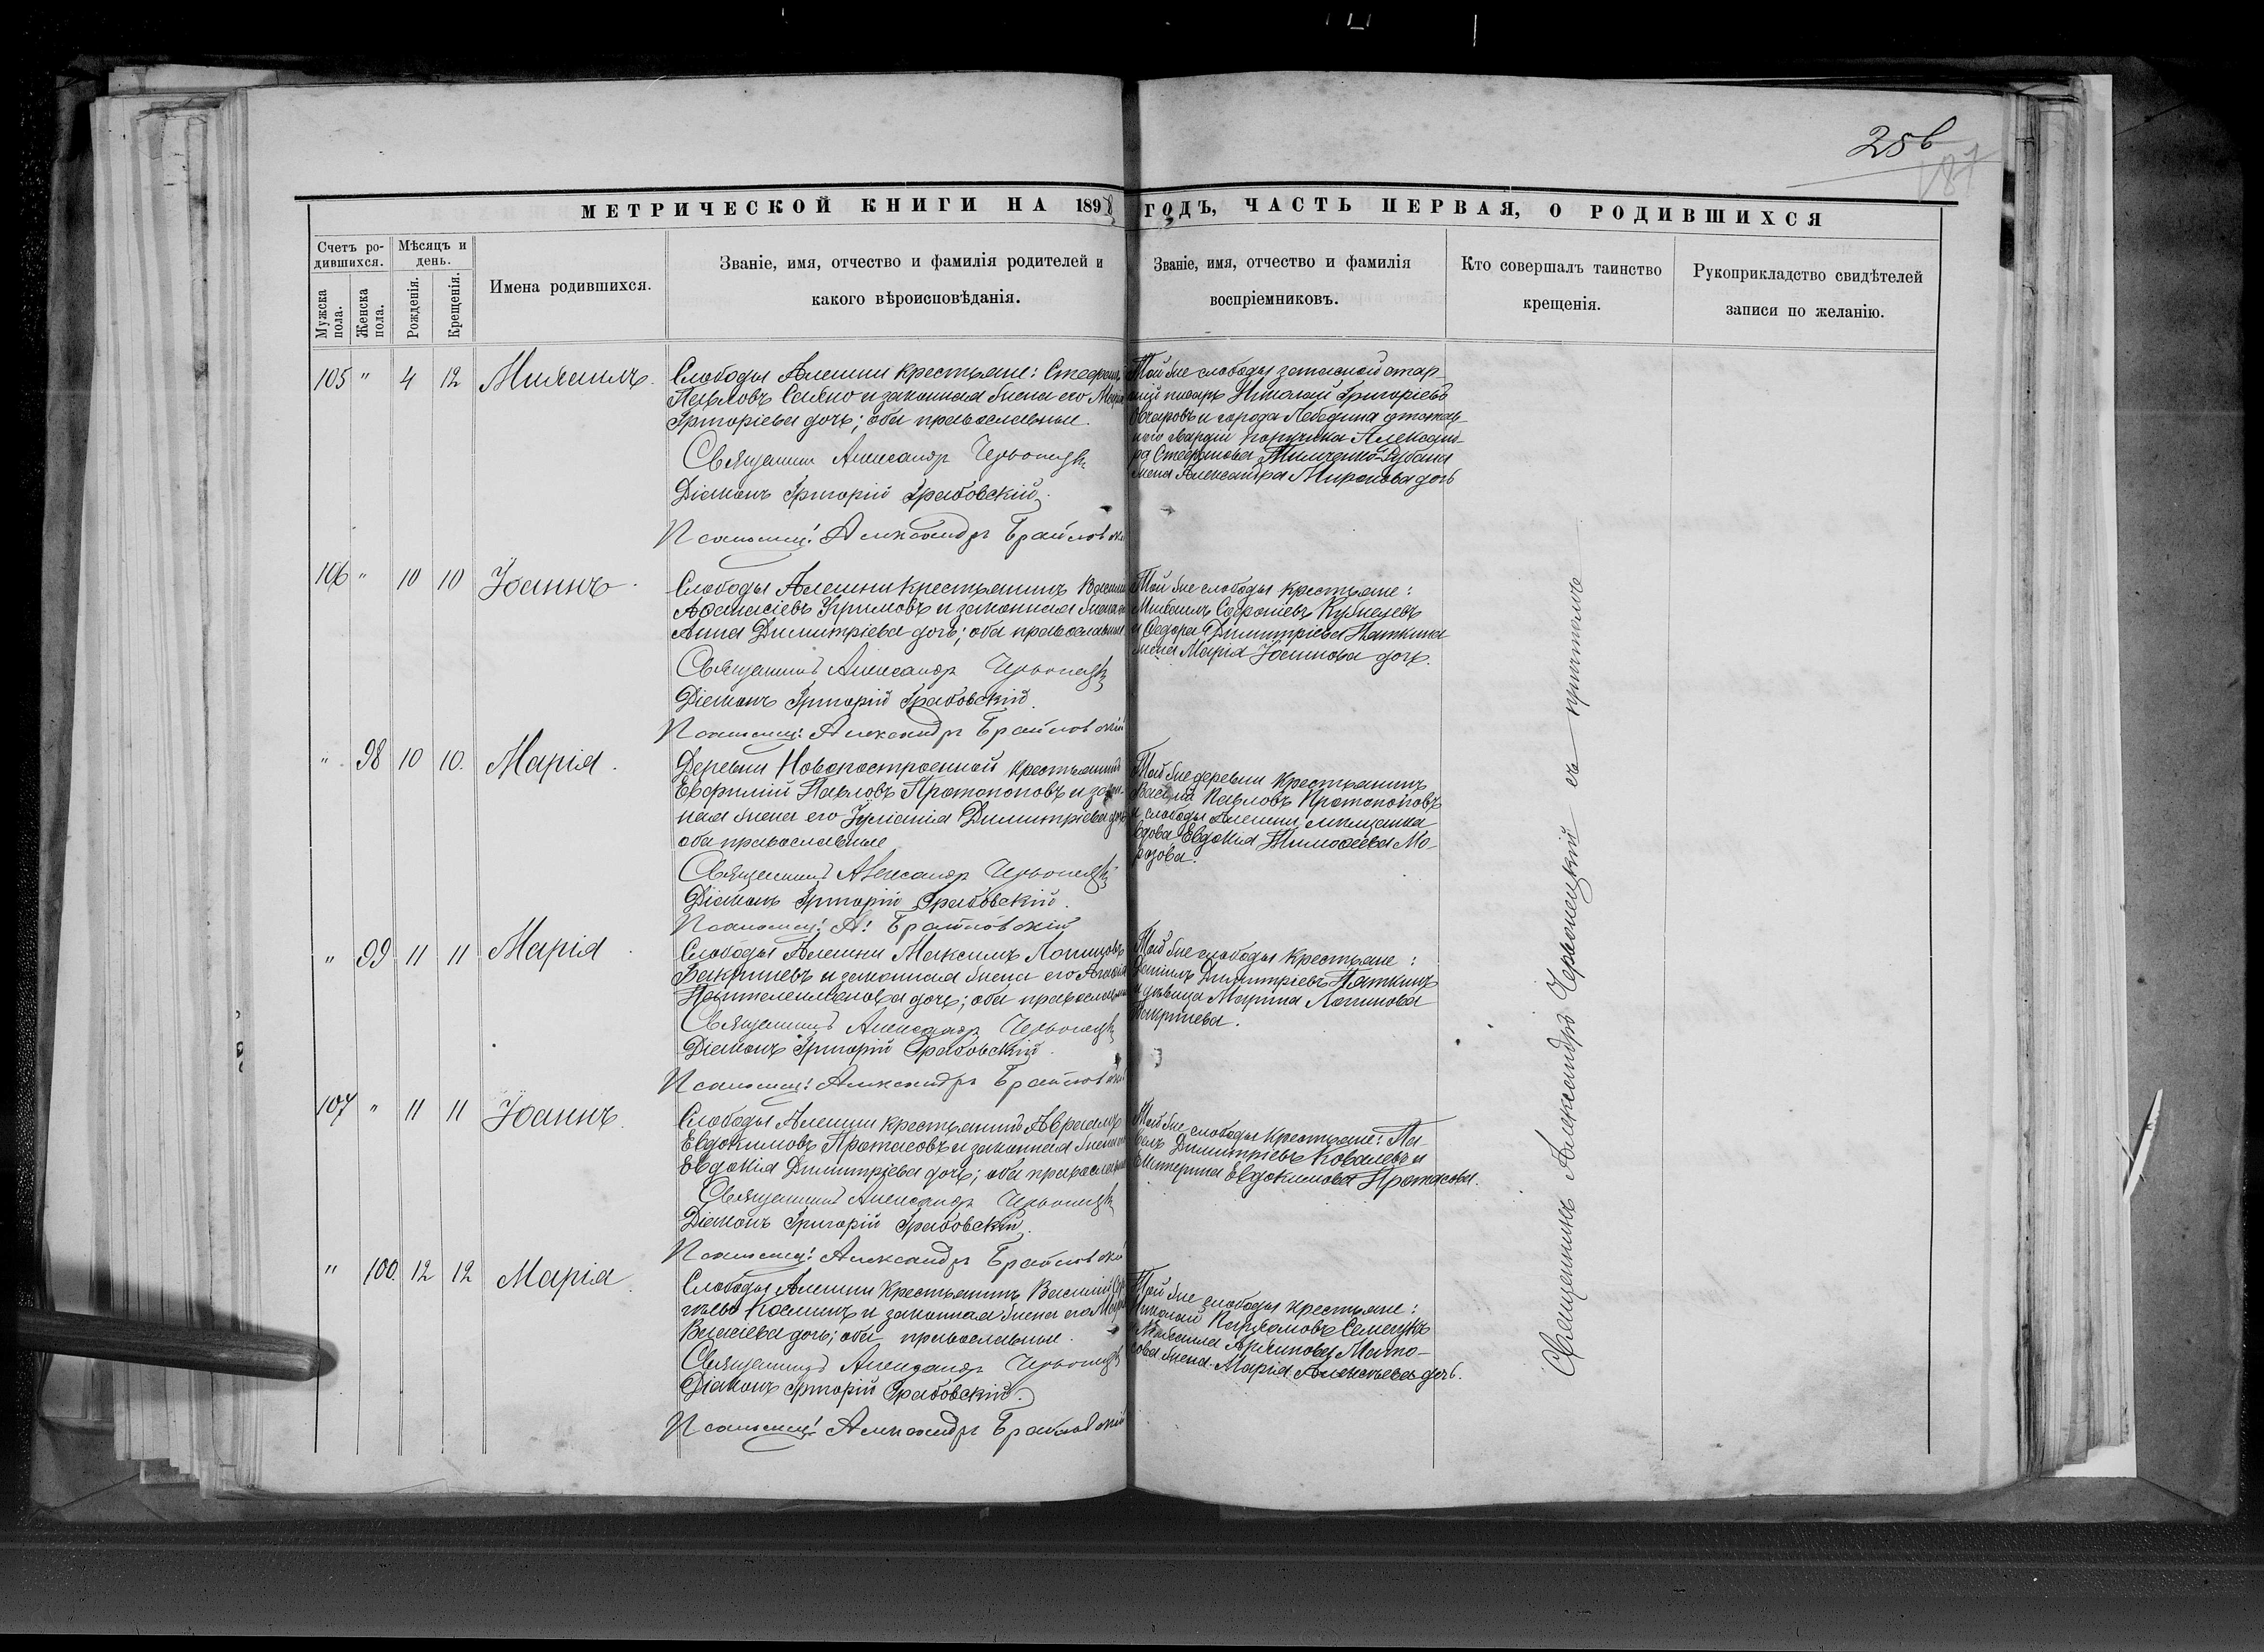 256
187
МЕТРИЧЕСКОЙ КНИГИ НА 1898 ГОДЪ, ЧАСТЬ ПЕРВАЯ, О РОДИВШИХСЯ
Счетъ ро-
дившихся.
Мужска
пола.
Женска
пола.
Мѣсяцъ и
день.
Рожденія.
Крещенія.
Имена родившихся.
Званіе, имя, отчество и фамилія родителей и
какого вѣроисповѣданія.
Званіе, имя, отчество и фамилія
воспріемниковъ.
Кто совершалъ таинство
крещенія.
Рукоприкладство свидѣтелей
записи по желанію.
105 " 4 12 Михаилъ.
Слободы Алешни крестьяне: Стефанъ
Павловъ и законная жена его Марія
Григоріева дочь; оба православные.
Священникъ Александръ Червонецкій
Діаконъ Григорій Грабовскій.
Псаломщ: Александръ Браиловскій
Той же слободы запасной стар-
шій писарь Николай Григоріевъ
Овчаровъ и города Лебедина
гвардіи поручика Александ-
ра Стефанова
жена Александра Миронова дочь
106 " 10 10 Іоаннъ.
Слободы Алешни крестьянинъ Василій
Аѳанасіевъ Кримовъ и законная жена его
Анна Димитріева дочь; оба православные
Священникъ Александръ Червонецкій
Діаконъ Григорій Грабовскій.
Псаломщ: Александръ Браиловскій
Той же слободы крестьяне:
Михаилъ Софроніевъ
и Ѳедора Димитріева Пяткина
жена Марія Іоаннова дочь.
" 98 10 10. Марія.
Деревни Новопостроенной крестьянинъ
Евфимій Павловъ Протопоповъ и закон-
ная жена его Іуліанія Димитріева дочь
оба православные
Священникъ Александръ Червонецкій
Діаконъ Григорій Грабовскій.
Псаломщ: А: Браиловскій
Той же деревни крестьянинъ
Василій Павловъ Протопоповъ
и слободы Алешни мѣщанка
вдова Евдокія Тимоѳеева Мо-
розова.
" 99 11 11 Марія.
Слободы Алешни Максимъ Логиновъ
и законная жена его
Пантелеимонова дочь; оба православные
Священникъ Александръ Червонецкій
Діаконъ Григорій Грабовскій.
Псаломщ: Александръ Браиловскій
Той же слободы крестьяне:
Даніилъ Димитріевъ Пяткинъ
и дѣвица Марина Логинова
107 " 11 11 Іоаннъ.
Слободы Алешни крестьянинъ Авраамъ
Евдокимовъ Протасовъ и законная жена его
Евдокія Димитріева дочь; оба православные
Священникъ Александръ Червонецкій
Діаконъ Григорій Грабовскій.
Псаломщ: Александръ Браиловскій
Той же слободы крестьяне: Па-
велъ Димитріевъ Ковалевъ и
Екатерина Евдокимова Протасова.
" 100. 12 12 Марія.
Слободы Алешни крестьянинъ Василій
и законная жена его
Власіева дочь; оба православные.
Священникъ Александръ Червонецкій
Діаконъ Григорій Грабовскій.
Псаломщ: Александръ Браиловскій
Той же слободы крестьяне:
Николай Пархомовъ
и Михаила
жена Марія Алексѣева дочь.
Священникъ Александръ Червонецкій съ причтомъ